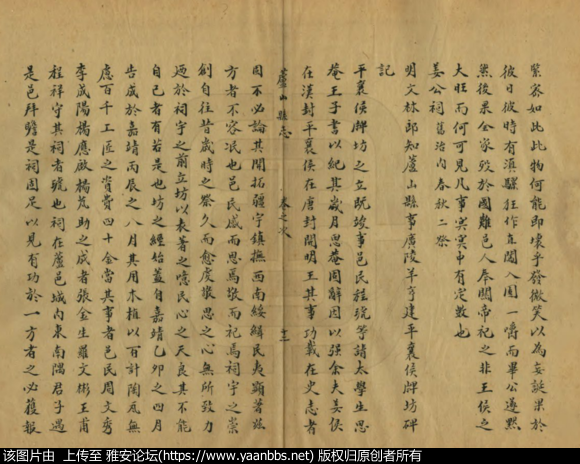 緊容如此此物何能即壞乎發微笑以為妄誕果於
彼日彼時有滇騾狂作直闖入園一嚼而畢公遂默
然後果全家歿於國難邑人奉關帝祀之非王侯之
大旺而何可見凡事冥冥中有定數也
姜公祠 舊治內春秋二祭
明文林郎知蘆山縣事廣陵羊亨建平襄侯牌坊碑
記
平襄侯牌坊之立既竣事邑民程號等請太學生思
菴王子書以紀其歲月思菴固辭因以強余夫姜侯
在漢封平襄侯在唐封開明王其事功載在史志者
蘆山縣志 卷之
固不必論其開拓疆宇鎮撫西南綏緝民夷顯著茲
方者不容泯也邑民感而思焉敬而祀焉祠宇之崇
創自往昔歲時之祭久而愈虔報思之心無所致力
迺於祠宇之前立坊以表著之噫民心之天良其不能
自已者有若是也坊之經始蓋自嘉靖乙卯之四月
告成於嘉靖丙辰之八月其用木植以百計陶瓦無
慮百千工匠之資費四十余當其事者邑民周文秀
李成陽楊應啟楊荒助之成者張金生羅文彬王甫
程祥守其祠者號也祠在蘆邑城內東南隅君子過
是邑拜瞻是祠固足以見有功於一方者之必獲報
该图片由 上传至 雅安论坛(https://www.yaanbbs.net) 版权归原创者所有